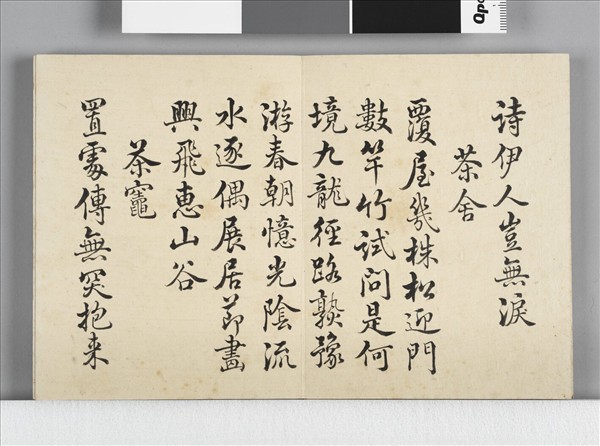 詩伊人豈無淚
茶舍
覆屋幾株松迎門
數竿竹試問是何
境九龍徑路熟豫
游春朝憶光陰流
水逐偶展居節畫
興飛惠山谷
茶竈
置處傳無突抱来